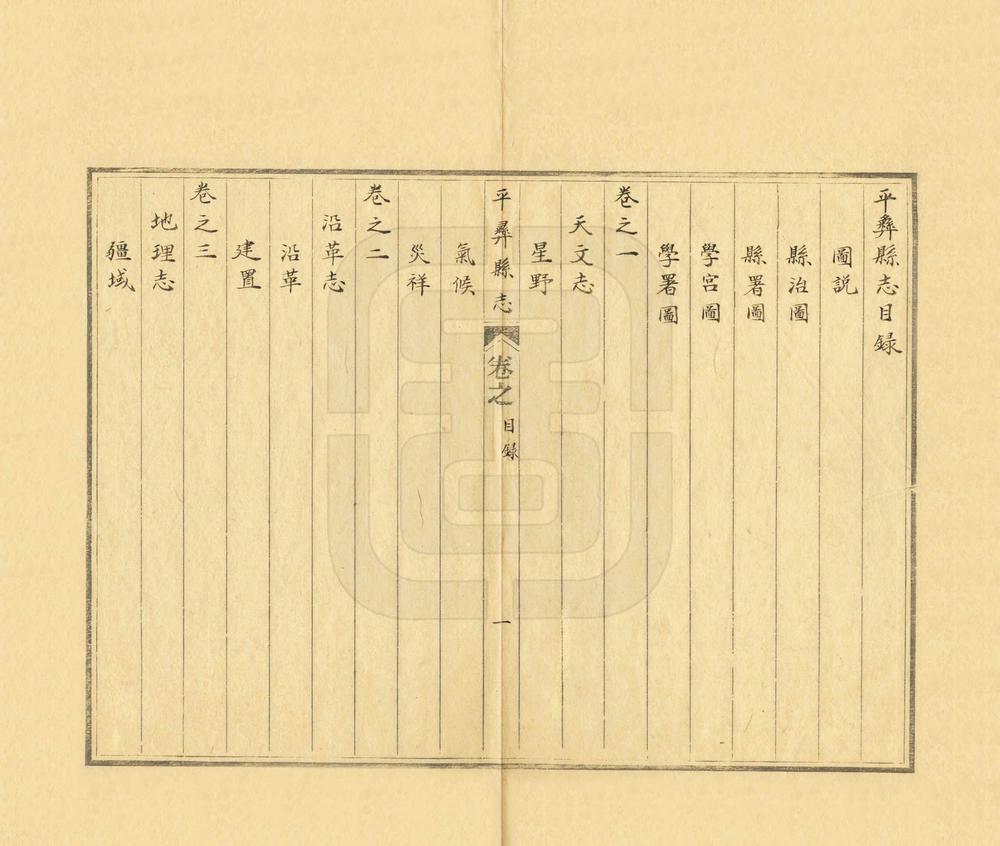 平彝縣志目録
圖説
縣治圖
縣署圖
學宮圖
學署圖
卷之一
天文志
星野
平彝縣志 卷之 目録 一
氣候
災祥
卷之二
沿革志
沿革
建置
卷之三
地理志
疆域